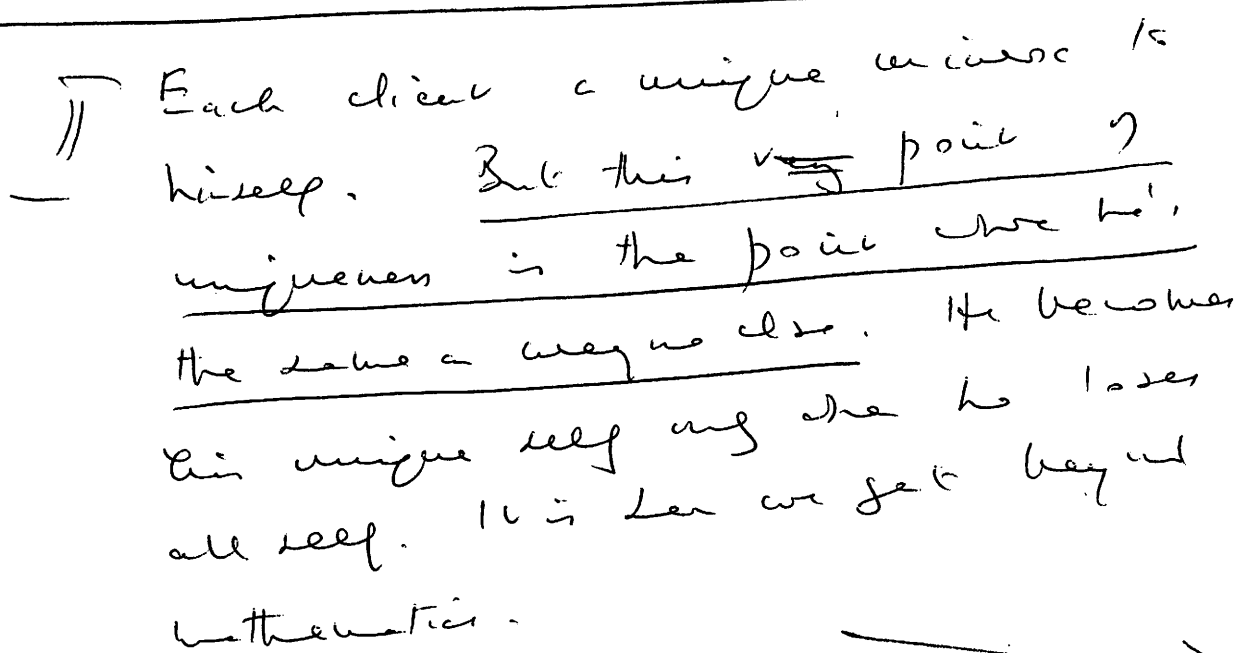 Each client a unique universe to
himself. But this very point of
uniqueness is the point where he's
the same as everyone else. He becomes
his unique self only when he loses
all self. It is here we get beyond
mathematics.